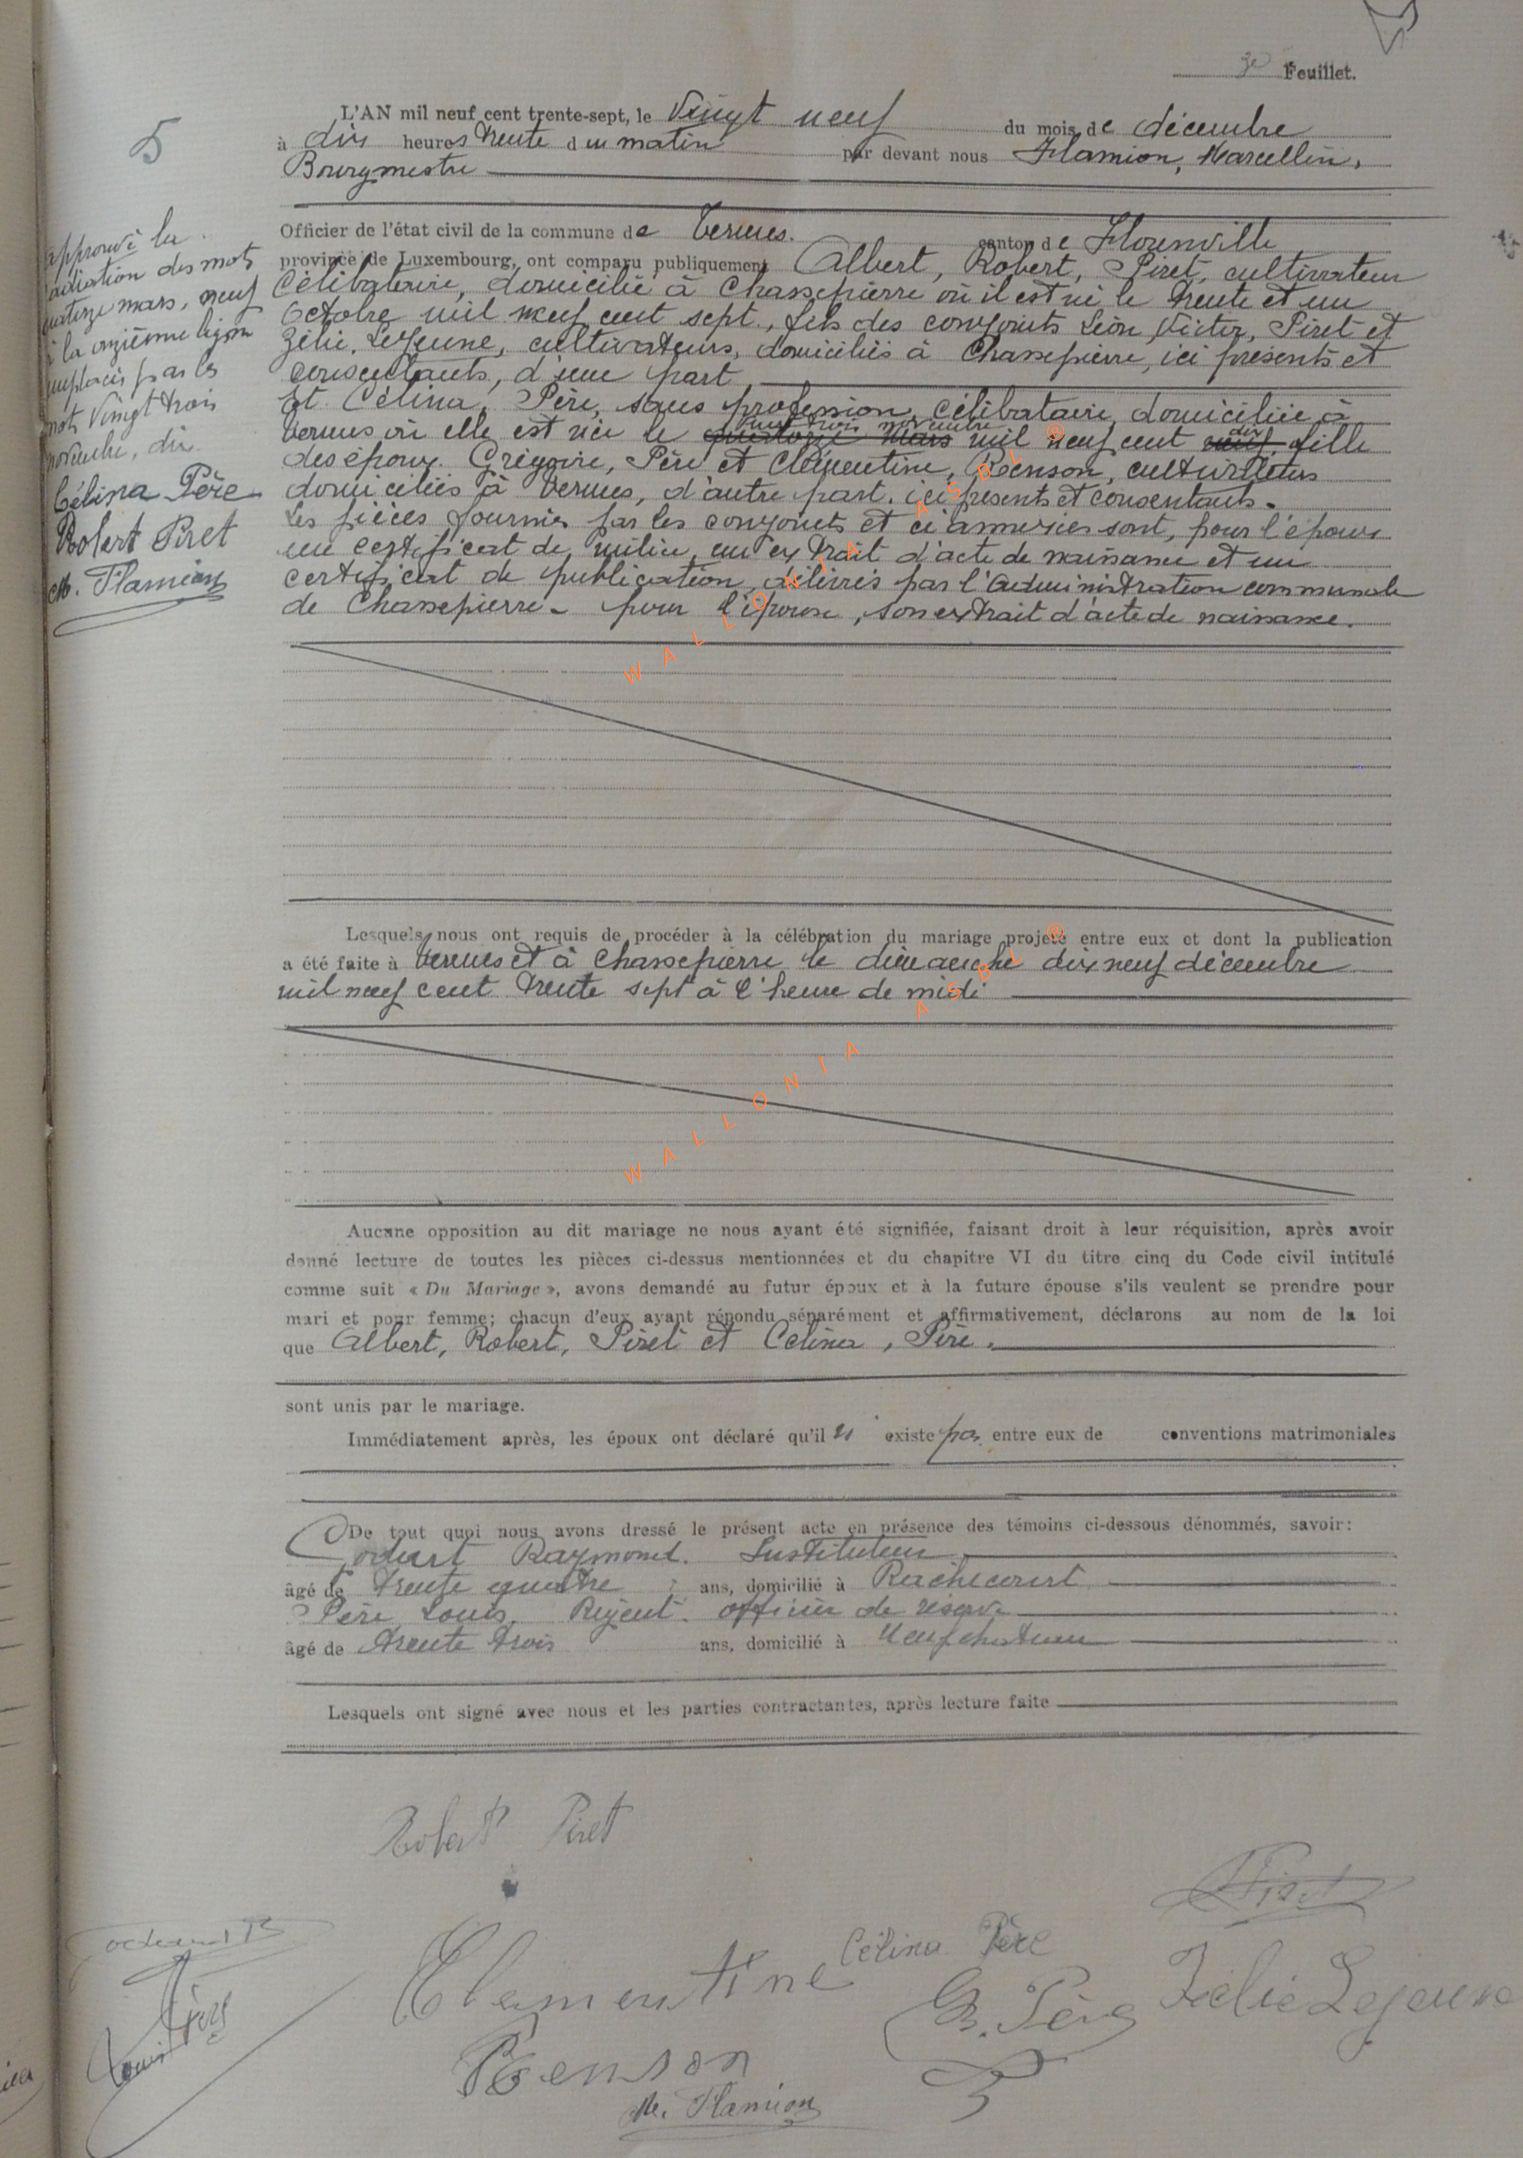 3e Feuillet.
5
L'AN mil neuf cent trente-sept, le Vingt neuf du mois de décembre
à dix heures trente du matin par devant nous Flamion, Marcellin,
Bourgmestre
Officier de l'état civil de la commune de Termes. canton de Florenville
province de Luxembourg, ont comparu publiquement Albert, Robert, Piret, cultivateur
Célibataire, domicilié à Chassepierre où il est né le trente et un
Octobre mil neuf cent sept, fils des conjoints Léon, Victor, Piret et
Zélie, Lejeune, cultivateurs, domiciliés à Chassepierre, ici présents et
consentants, d'une part,
Et Célina, Père, sans profession, célibataire, domiciliée à
vingt trois novembre dix
Termes où elle est née le quatorze mars mil neuf cent neuf, fille
des époux Grégoire, Père et Clémentine, Roenson, cultivateurs
domiciliés à Termes, d'autre part, ici présents et consentants.
Les pièces fournies par les conjoints et ci annexées sont, pour l'époux
un certificat de milice, un extrait d'acte de naissance et un
certificat de publication, délivrés par l'administration communale
de Chassepierre - pour l'épouse, son extrait d'acte de naissance.
approuvé la
radiation des mots
quatorze mars, neuf
à la onzième ligne
remplacés par les
mots Vingt trois
novembre, dix
Célina Père
Robert Piret
M. Flamion
Lesquels nous ont requis de procéder à la célébration du mariage projeté entre eux et dont la publication
a été faite à Termes et à Chassepierre le dimanche dix neuf décembre
mil neuf cent trente sept à l'heure de midi
Aucune opposition au dit mariage ne nous ayant été signifiée, faisant droit à leur réquisition, après avoir
donné lecture de toutes les pièces ci-dessus mentionnées et du chapitre VI du titre cinq du Code civil intitulé
comme suit « Du Mariage », avons demandé au futur époux et à la future épouse s'ils veulent se prendre pour
mari et pour femme; chacun d'eux ayant répondu séparément et affirmativement, déclarons au nom de la loi
que Albert, Robert, Piret et Célina, Père.
sont unis par le mariage.
Immédiatement après, les époux ont déclaré qu'il n' existe pas entre eux de conventions matrimoniales
De tout quoi nous avons dressé le présent acte en présence des témoins ci-dessous dénommés, savoir:
Raymond. Instituteur
âgé de trente quatre ans, domicilié à Rachecourt
Père Louis, Régent. officier de réserve
âgé de trente trois ans, domicilié à Neufchateau
Lesquels ont signé avec nous et les parties contractantes, après lecture faite
Robert Piret
Piret
Célina Père
Clementine
G. Père
Zélie Lejeune
Louis Père
Roenson
M. Flamion
WALLONIA ASBL ®
WALLONIA ASBL ®